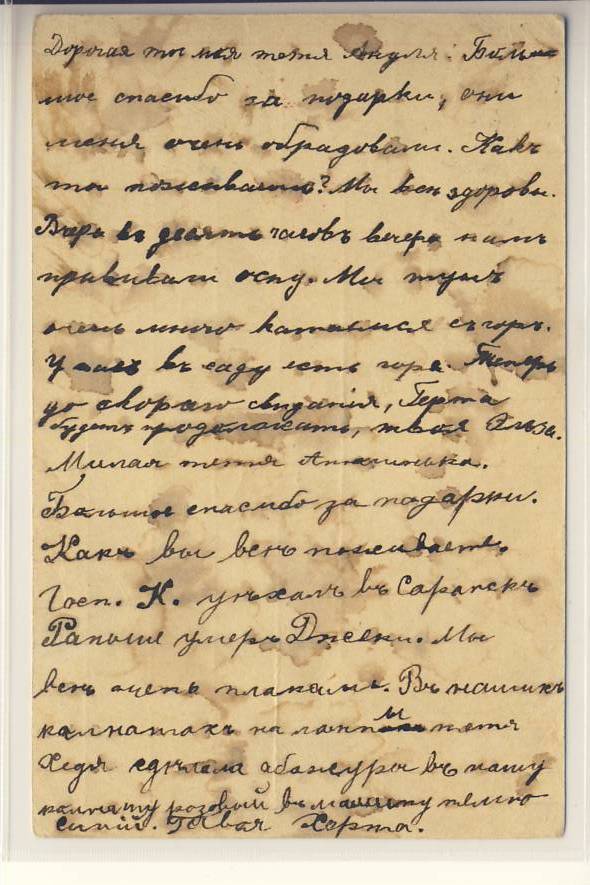 Дорогая ты моя тетя Ануля. Боль-
шое спасибо за подарки, они
меня очень обрадовали. Какъ
ты поживаешь? Мы всѣ здоровы.
Вчера въ десять часовъ вечера намъ
прививали оспу. Мы тутъ
очень много катаемся съ горъ.
У насъ въ саду есть гора. Теперь
до скораго свиданія, Герта
будетъ продолжать, твоя Эльза.
Милая тетя Аннинька.
Большое спасибо за подарки.
Какъ вы всѣ поживаете.
Госп. К. уѣхалъ въ Сарапскъ
Раньше умеръ Джеки. Мы
всѣ очень плакали. Въ нашихъ
комнатахъ на лампы тетя
Хедя сдѣлала абажуры въ нашу
комнату розовый въ мамину темно
синій. Твоя Херта.